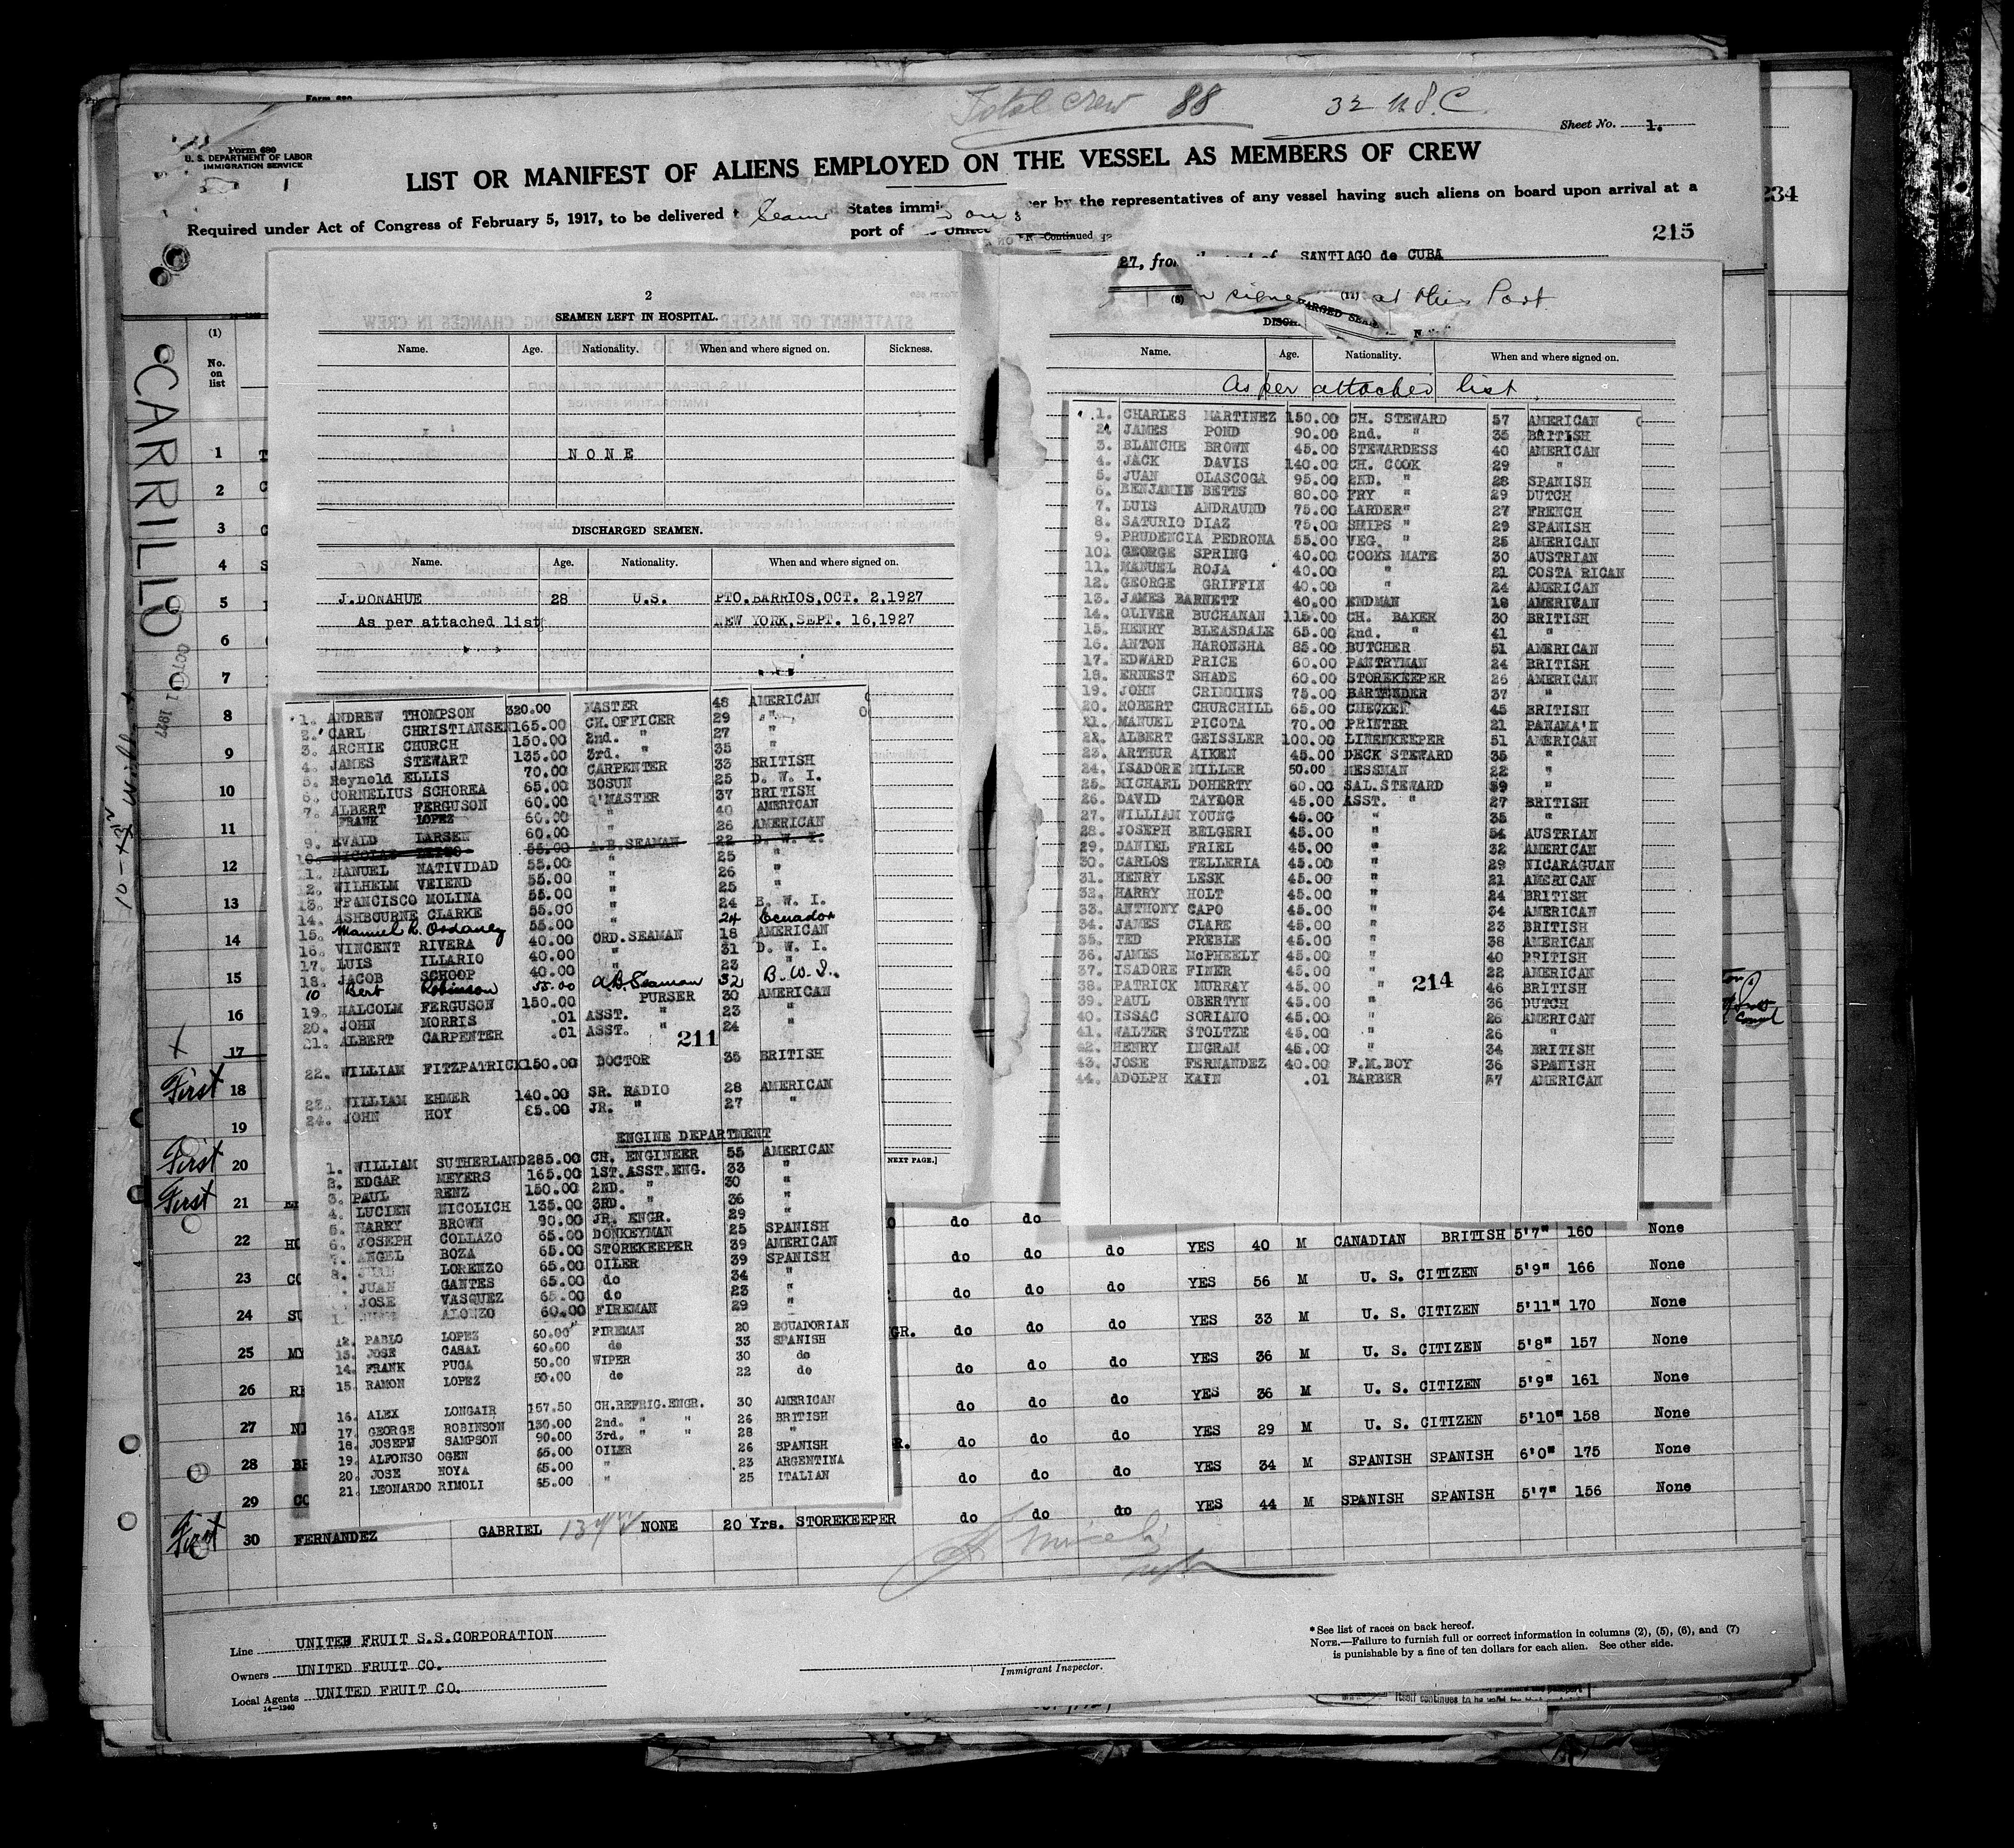 Total crew 88 32 U.S.C.
Sheet No. 1.
Form 680
U. S. DEPARTMENT OF LABOR
IMMIGRATION SERVICE
LIST OR MANIFEST OF ALIENS EMPLOYED ON THE VESSEL AS MEMBERS OF CREW
Required under Act of Congress of February 5, 1917, to be delivered States by the representatives of any vessel having such aliens on board upon arrival at a
port of
Continued
234
215
27, SANTIAGO de CUBA
at this Port
CARRILLO
(1)
No. on list
2
SEAMEN LEFT IN HOSPITAL.
Name. Age. Nationality. When and where signed on. Sickness.
NONE
DISCHARGED SEAMEN.
Name. Age. Nationality. When and where signed on.
J.DONAHUE 28 U.S. PTO.BARRIOS,OCT. 2,1927
As per attached list NEW YORK,SEPT. 16,1927
1. ANDREW THOMPSON 320.00 MASTER 48 AMERICAN
2. CARL CHRISTIANSEN 165.00 CH.OFFICER 29 "
3. ARCHIE CHURCH 150.00 2nd. " 27 "
4. JAMES STEWART 135.00 3rd. " 35 "
5. Reynold ELLIS 70.00 CARPENTER 33 BRITISH
6. CORNELIUS SCHOREA 65.00 BOSUN 25 D. W. I.
7. ALBERT FERGUSON 60.00 Q'MASTER 37 BRITISH
FRANK LOPEZ 60.00 " 40 AMERICAN
9. EVALD LARSEN 60.00 " 26 AMERICAN
10. NICOLAS 55.00 A.B.SEAMAN 22 D. W. I.
11. MANUEL NATIVIDAD 55.00 " 25 "
12. WILHELM VEIEND 55.00 " 26 "
13. FRANCISCO MOLINA 55.00 " 25 "
14. ASHBOURNE CLARKE 55.00 " 24 B. W. I.
15. Manuel 55.00 " 24 Ecuador
16. VINCENT RIVERA 40.00 ORD.SEAMAN 18 AMERICAN
17. LUIS ILLARIO 40.00 " 31 D. W. I.
18. JACOB SCHOOP 40.00 " 23 "
10 Bert Robinson 55.00 A.B Seaman 32 B.W.I.
19. MALCOLM FERGUSON 150.00 PURSER 30 AMERICAN
20. JOHN MORRIS .01 ASST. " 23 "
21. ALBERT CARPENTER .01 ASST. " 24 "
211
22. WILLIAM FITZPATRICK 150.00 DOCTOR 35 BRITISH
23. WILLIAM EHMER 140.00 SR. RADIO 28 AMERICAN
24. JOHN HOY 85.00 JR. " 27 "
ENGINE DEPARTMENT
1. WILLIAM SUTHERLAND 285.00 CH. ENGINEER 55 AMERICAN
2. EDGAR MEYERS 165.00 1ST.ASST.ENG. 33 "
3. PAUL RENZ 150.00 2ND. " 30 "
4. LUCIEN NICOLICH 135.00 3RD. " 36 "
5. HARRY BROWN 90.00 JR. ENGR. 29 "
6. JOSEPH COLLAZO 65.00 DONKEYMAN 25 SPANISH
7. ANGEL BOZA 65.00 STOREKEEPER 39 AMERICAN
8. LORENZO 65.00 OILER 39 SPANISH
JUAN GANTES 65.00 do 34 "
JOSE VASQUEZ 65.00 do 23 "
ALONZO 60.00 FIREMAN 29 "
12. PABLO LOPEZ 60.00 FIREMAN 20 ECUADORIAN
13. JOSE CASAL 60.00 do 33 SPANISH
14. FRANK PUGA 50.00 WIPER 30 do
15. RAMON LOPEZ 50.00 do 22 do
16. ALEX LONGAIR 157.50 CH.REFRIG.ENGR. 30 AMERICAN
17. GEORGE ROBINSON 130.00 2nd. " " 26 BRITISH
18. JOSEPH SAMPSON 90.00 3rd. " " 28 "
19. ALFONSO OGEN 65.00 OILER 26 SPANISH
20. JOSE NOYA 65.00 " 23 ARGENTINA
21. LEONARDO RIMOLI 65.00 " 25 ITALIAN
NEXT PAGE.]
Name. Age. Nationality. When and where signed on.
As per attached list.
1. CHARLES MARTINEZ 150.00 CH. STEWARD 57 AMERICAN
2. JAMES POND 90.00 2nd. " 35 BRITISH
3. BLANCHE BROWN 45.00 STEWARDESS 40 AMERICAN
4. JACK DAVIS 140.00 CH. COOK 29 "
5. JUAN OLASCOGA 95.00 2ND. " 28 SPANISH
6. BENJAMIN BETTS 80.00 FRY " 29 DUTCH
7. LUIS ANDRAUND 75.00 LARDER" 27 FRENCH
8. SATURIO DIAZ 75.00 SHIPS " 29 SPANISH
9. PRUDENCIA PEDRONA 55.00 VEG. " 25 AMERICAN
10. GEORGE SPRING 40.00 COOKS MATE 30 AUSTRIAN
11. MANUEL ROJA 40.00 " 21 COSTA RICAN
12. GEORGE GRIFFIN 40.00 " 24 AMERICAN
13. JAMES BARNETT 40.00 ENDMAN 18 AMERICAN
14. OLIVER BUCHANAN 115.00 CH. BAKER 30 BRITISH
15. HENRY BLEASDALE 65.00 2nd. " 41 "
16. ANTON HARONSHA 85.00 BUTCHER 51 AMERICAN
17. EDWARD PRICE 60.00 PANTRYMAN 24 BRITISH
18. ERNEST SHADE 60.00 STOREKEEPER 26 AMERICAN
19. JOHN CRIMMINS 75.00 BARTENDER 37 "
20. ROBERT CHURCHILL 65.00 CHECKER 45 BRITISH
21. MANUEL PICOTA 70.00 PRINTER 21 PANAMA'N
22. ALBERT GEISSLER 100.00 LINENKEEPER 51 AMERICAN
23. ARTHUR AIKEN 45.00 DECK STEWARD 35 "
24. ISADORE MILLER 50.00 MESSMAN 22 "
25. MICHAEL DOHERTY 60.00 SAL.STEWARD 39 "
26. DAVID TAYLOR 45.00 ASST. " 27 BRITISH
27. WILLIAM YOUNG 45.00 " 35 "
28. JOSEPH BELGERI 45.00 " 54 AUSTRIAN
29. DANIEL FRIEL 45.00 " 32 AMERICAN
30. CARLOS TELLERIA 45.00 " 29 NICARAGUAN
31. HENRY LESK 45.00 " 21 AMERICAN
32. HARRY HOLT 45.00 " 24 BRITISH
33. ANTHONY CAPO 45.00 " 34 AMERICAN
34. JAMES CLARE 45.00 " 23 BRITISH
35. TED PREBLE 45.00 " 38 AMERICAN
36. JAMES McPHEELY 45.00 " 40 BRITISH
37. ISADORE FINER 45.00 " 22 AMERICAN
38. PATRICK MURRAY 45.00 " 46 BRITISH
214
39. PAUL OBERTYN 45.00 " 36 DUTCH
40. ISSAC SORIANO 45.00 " 26 AMERICAN
41. WALTER STOLTZE 45.00 " 26 "
42. HENRY INGRAM 45.00 " 34 BRITISH
43. JOSE FERNANDEZ 40.00 F.M.BOY 36 SPANISH
44. ADOLPH KAIN .01 BARBER 57 AMERICAN
1
2
3
4
5
6
7
8
9
10
11
12
13
14
15
16
17
First 18
19
First 20
First 21 do do
22 do do do YES 40 M CANADIAN BRITISH 5'7" 160 None
23 do do do YES 56 M U. S. CITIZEN 5'9" 166 None
24 do do do YES 33 M U. S. CITIZEN 5'11" 170 None
25 do do do YES 36 M U. S. CITIZEN 5'8" 157 None
26 do do do YES 36 M U. S. CITIZEN 5'9" 161 None
27 do do do YES 29 M U. S. CITIZEN 5'10" 158 None
28 do do do YES 34 M SPANISH SPANISH 6'0" 175 None
29 do do do YES 44 M SPANISH SPANISH 5'7" 156 None
First 30 FERNANDEZ GABRIEL NONE 20 Yrs. STOREKEEPER
Line UNITED FRUIT S.S.CORPORATION
Owners UNITED FRUIT CO.
Local Agents UNITED FRUIT CO.
14—1240
Immigrant Inspector.
*See list of races on back hereof.
NOTE.—Failure to furnish full or correct information in columns (2), (5), (6), and (7)
is punishable by a fine of ten dollars for each alien. See other side.